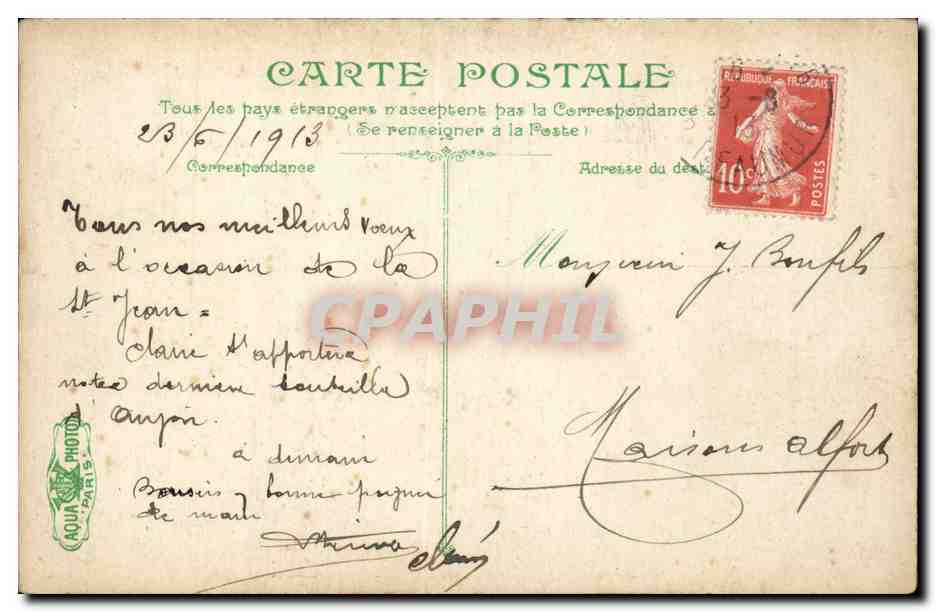 CARTE POSTALE
Tous les pays étrangers n'acceptent pas la Correspondance
(Se renseigner à la Poste)
23/6/1913
Correspondance
Adresse du dest
REPUBLIQUE FRANÇAISE
10 c
POSTES
3 -8
Tous nos meilleurs voeux
à l'occasion de la
St Jean =
Claire t'apportera
notre dernière bouteille
d'Anjou.
à demain
Bonsoir, bonne poignée
de main
Monsieur J. Bonfils
Maisons alfort
CPAPHIL
AQUA PHOTO
PARIS